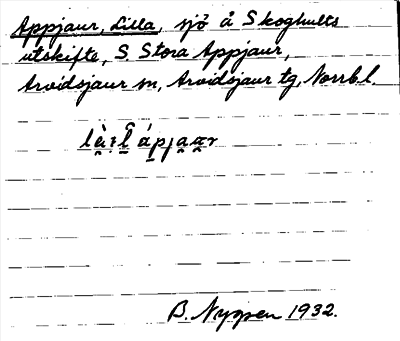 Appjaur, Lilla, sjö å Skoghults
utskifte, S. Stora Appjaur,
Arvidsjaur sn, Arvidsjaur tg, Norrb.l.
B. Nygren 1932.